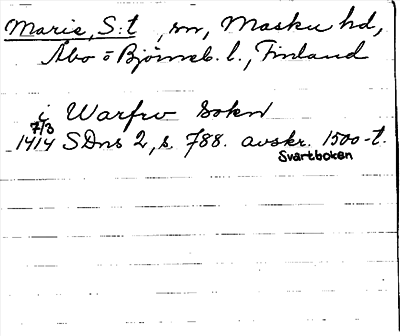 Marie, S:t, sn, Masku hd,
Åbo o Björneb. l., Finland
i Warfrv Sokn
7/3
1414 SDns 2, s. 788. avskr. 1500-t.
Svartboken